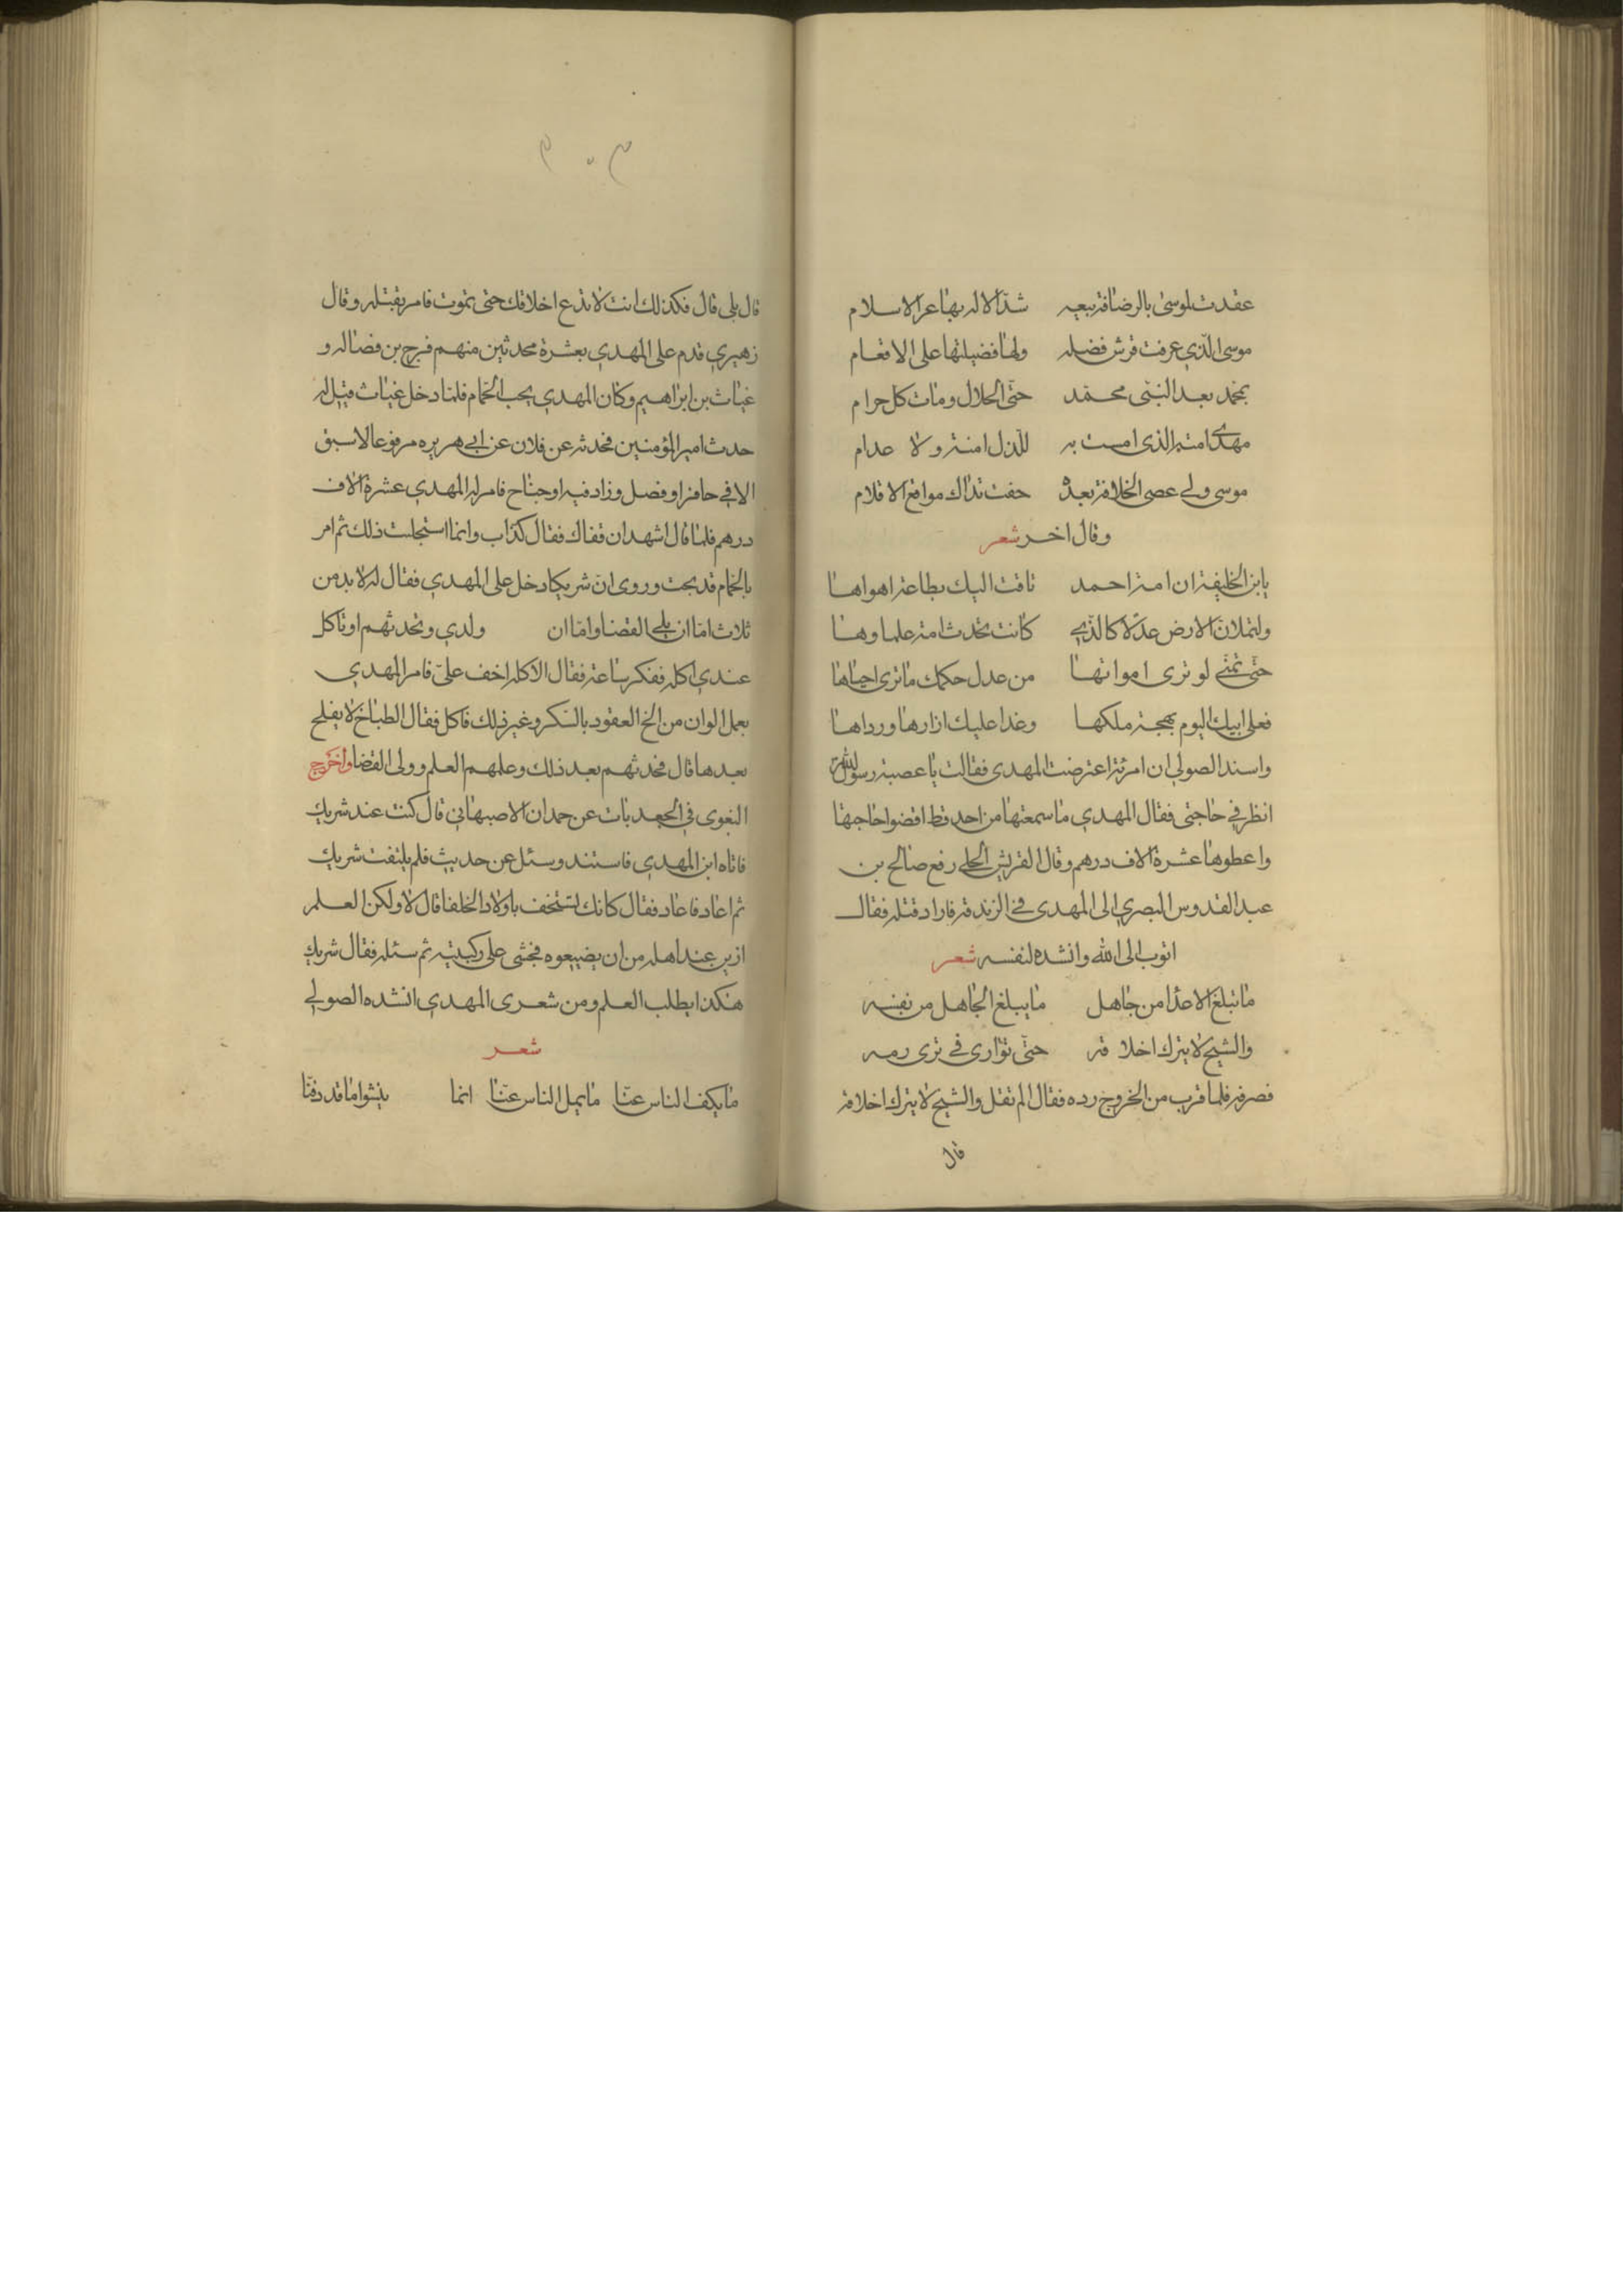 عقدت لموسى بالرضافة بيعه شد الاله بها عر الاسلام
موسى الذي عرفت قرش فضله ولها فضيلتها على الاقعام
بمحمد بعد النبي محمد حتى الحلال ومات كل حرام
مهدى امته الذى امست به للذل امنة ولا عدام
موسى ولى عصى الخلافة بعده حفت تداك مواقع الاقلام
وقال اخر شعر
يابن الخليفة ان امة احمد تاقت اليك بطاعة اهواها
ولتملان الارض عدلا كالذي كانت تحدث امة علماوها
حتى تمنى لو ترى امواتها من عدل حكمك ماترى احياها
فعلى ابيك اليوم بهجة ملكها وغدا عليك ازارها ورداها
واسند الصولي ان امرئة اعترضت المهدى فقالت يا عصبة رسول الله
انظر في حاجتى فقال المهدي ما سمعتها من احد قط اقضوا حاجتها
واعطوها عشرة الاف درهم وقال القريش الحلي رفع صالح بن
عبد القدوس البصري الى المهدى في الزندقة فاراد قتله فقال
اتوب الى الله وانشده لنفسه شعر
ما تبلغ الاعدا من جاهل ما يبلغ الجاهل من نفسه
والشيخ لا يترك اخلاقه حتى توارى فى ثرى رمه
فصرفه فلما قرب من الخروج رده فقال الم تقل والشيخ لا يترك اخلاقه
قال
٣٠٣
قال بلى قال فكذلك انت لا تدع اخلاقك حتى تموت فامر بقتله وقال
زهيري قدم على المهدي بعشرة محدثين منهم فرج بن فضاله و
غياث بن ابراهيم وكان المهدي يحب الحمام فلما دخل غياث قيل له
حدث امير المؤمنين فحدثه عن فلان عن ابى هريره مرفوعا لاسبق
الا في حافر او فصل وزاد فيه او جناح فامر له المهدي عشرة الاف
درهم فلما قال اشهد ان قفاك فقال كذاب وانما استجلت ذلك ثم امر
بالحمام قدبحت وروى ان شريكا دخل على المهدي فقال له لابد من
ثلاث اما ان يلى القضا واما ان ولدي وتحدثهم او تاكل
عندي اكله ففكر ساعة فقال الاكله اخف على فامر المهدي
بعمل الوان من الخ العقود بالسكر وغير ذلك فاكل فقال الطباخ لا يفلح
بعدها قال فحدثهم بعد ذلك وعلمهم العلم وولى القضا واخرج
البغوى في الجعديات عن حمدان الاصبهانى قال كنت عند شريك
فاتاه ابن المهدى فاستند وسئل عن حديث فلم يلتفت شريك
ثم اعاد فاعاد فقال كانك تستخف باولاد الخلفا قال لا ولكن العلم
ازين عند اهله من ان يضيعوه فجثى على ركبتيه ثم سئله فقال شريك
هكذا يطلب العلم ومن شعرى المهدي انشده الصولي
شعر
ما يكف الناس عنا ما يمل الناس عنا انما ينشوا ما قد دفنا